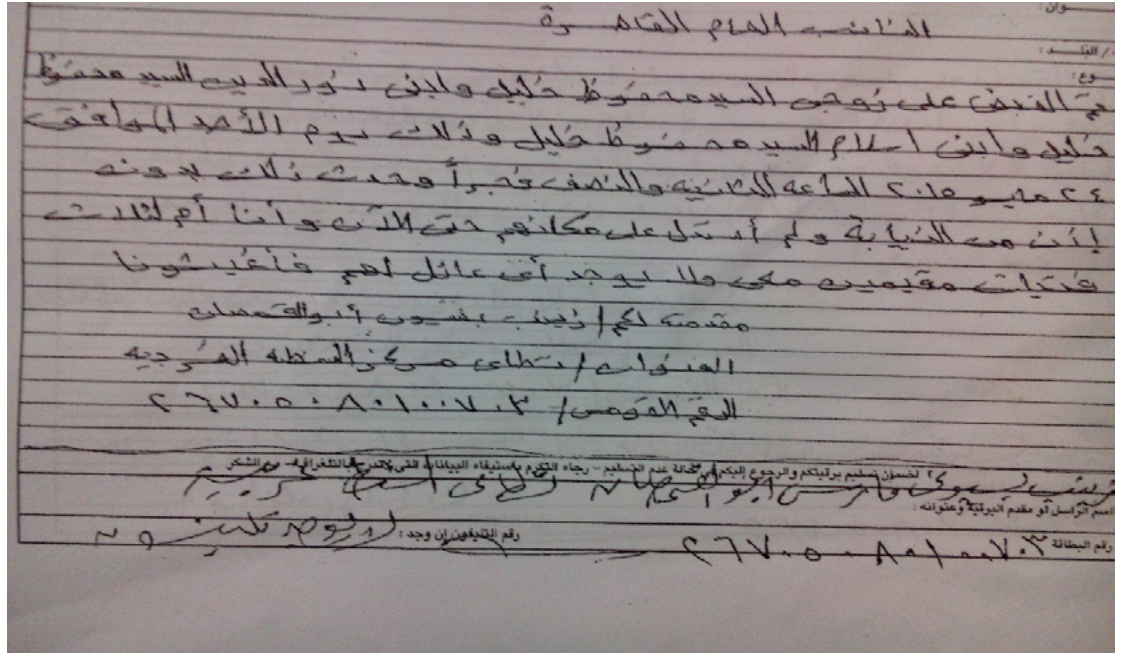 ـوان:
النائب العام القاهرة
/ البلـد :
ـوع :
تم القبض على زوجى السيد محفوظ خليل وابنى نور الدين السيد محفوظ
خليل وابنى اسلام السيد محفوظ خليل وذلك يوم الأحد الموافق
٢٤ مايو ٢٠١٥ الساعة الثانيه والنصف فجراً وحدث ذلك بدونه
إذن من النيابة ولم أستدل على مكانهم حتى الآن وأنا أم لثلاث
فتيات مقيمين معى ولا يوجد أى عائل لهم فأغيثونا
مقدمته لكم / زينب بسيونى أبو القمصان
العنوان / شطاى مركز السنطه الغربيه
الرقم القومى / ٢٦٧٠٥٠٨٠١٠٠٧٠٣
لضمان تسليم برقيتكم والرجوع إليكم فى حالة عدم التسليم – رجاء التكرم باستيفاء البيانات التى لا تدرج بالتلغراف – مع الشكر
زينب بسيونى أبو القمصان
اسم الراسل أو مقدم البرقية وعنوانه :
رقم البطاقة ٢٦٧٠٥٠٨٠١٠٠٧٠٣ رقم التليفون إن وجد : لا يوجد تليفون